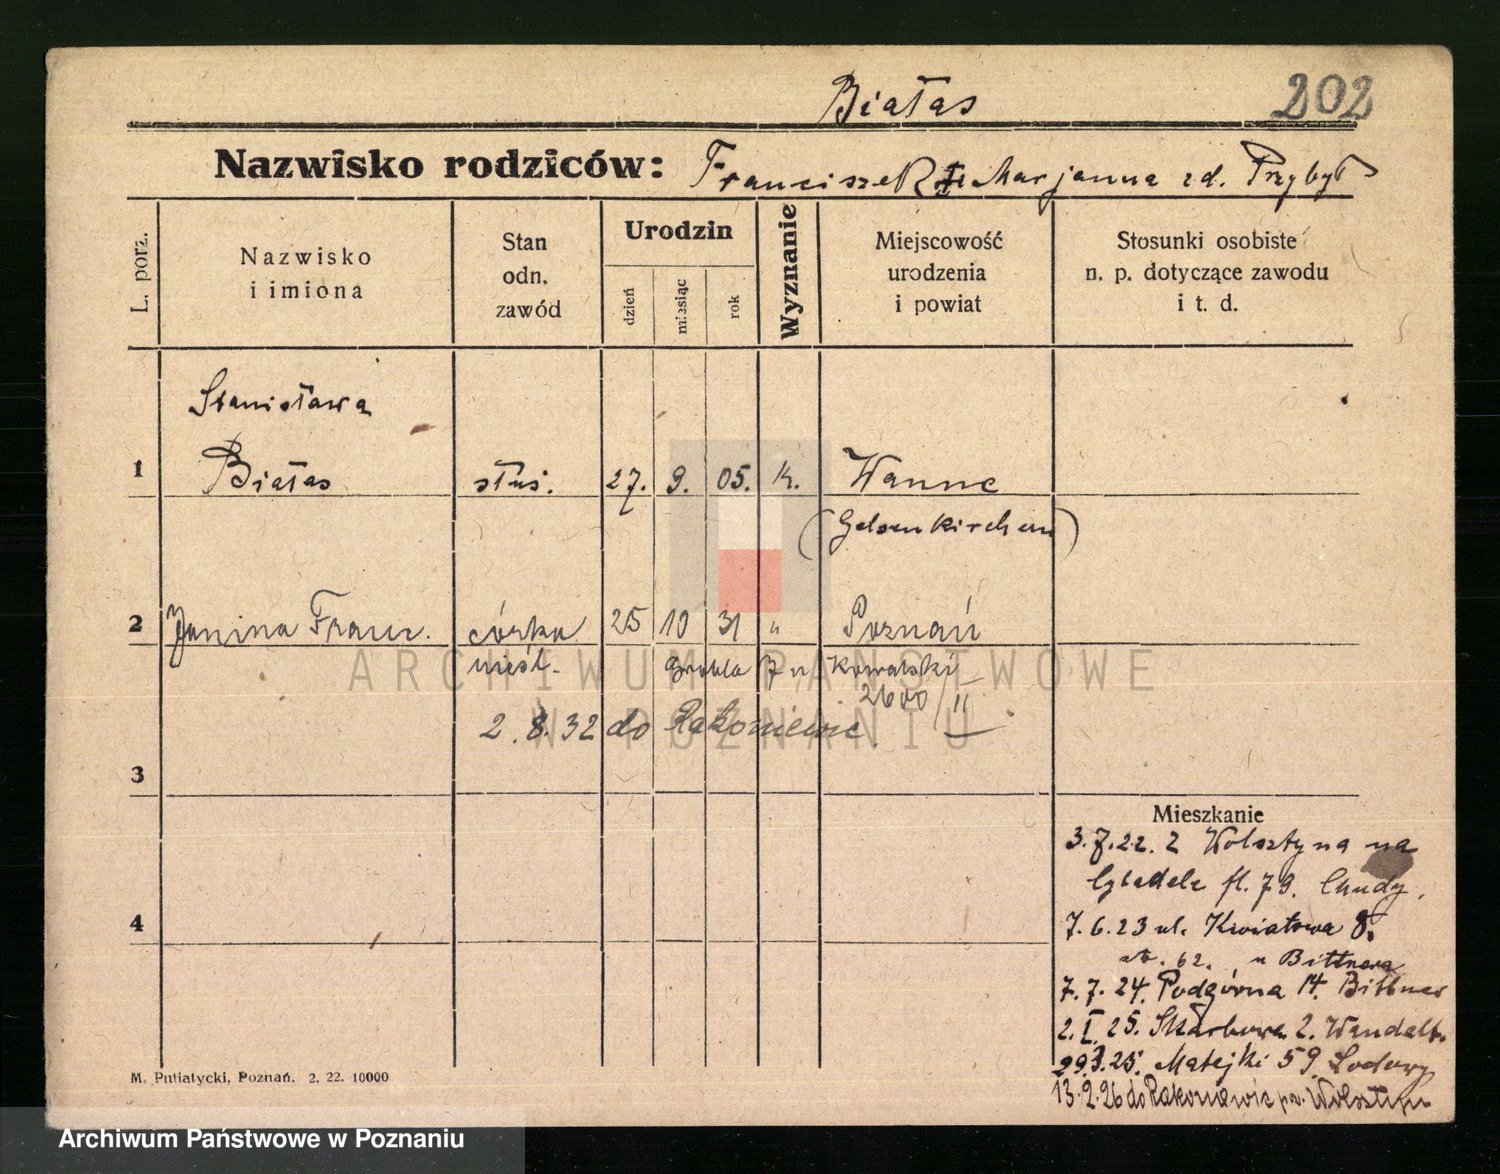 Białas
202
Nazwisko rodziców: Franciszek i Marjanna zd. Przybył
L. porz.
Nazwisko
i imiona
Stan
odn.
zawód
Urodzin
dzień
miesiąc
rok
Wyznanie
Miejscowość
urodzenia
i powiat
Stosunki osobiste
n. p. dotyczące zawodu
i t. d.
Stanisława
1 Białas służ. 27. 9. 05. k. Wanne
(Gelsenkirchen)
2 Janina Franc. córka 25 10 31 " Poznań
nieśl. Grobla 7 u Kowalski
2600/II
2.8.32 do Rakoniewic.
3
Mieszkanie
3.7.22. z Wolsztyna na
Cytadele fl. 79. Chudy.
4
7.6.23 ul. Kwiatowa 8.
62. u Bittnera
7.7.24. Podgórna 14. Bittner
2.I.25. Skarbowa 2. Wandelt.
29.3.25. Matejki 59. Lodowy
13.2.26 do Rakoniewic pow. Wolsztyn
M. Putiatycki, Poznań. 2. 22. 10000
ARCHIWUM PAŃSTWOWE
W POZNANIU
Archiwum Państwowe w Poznaniu